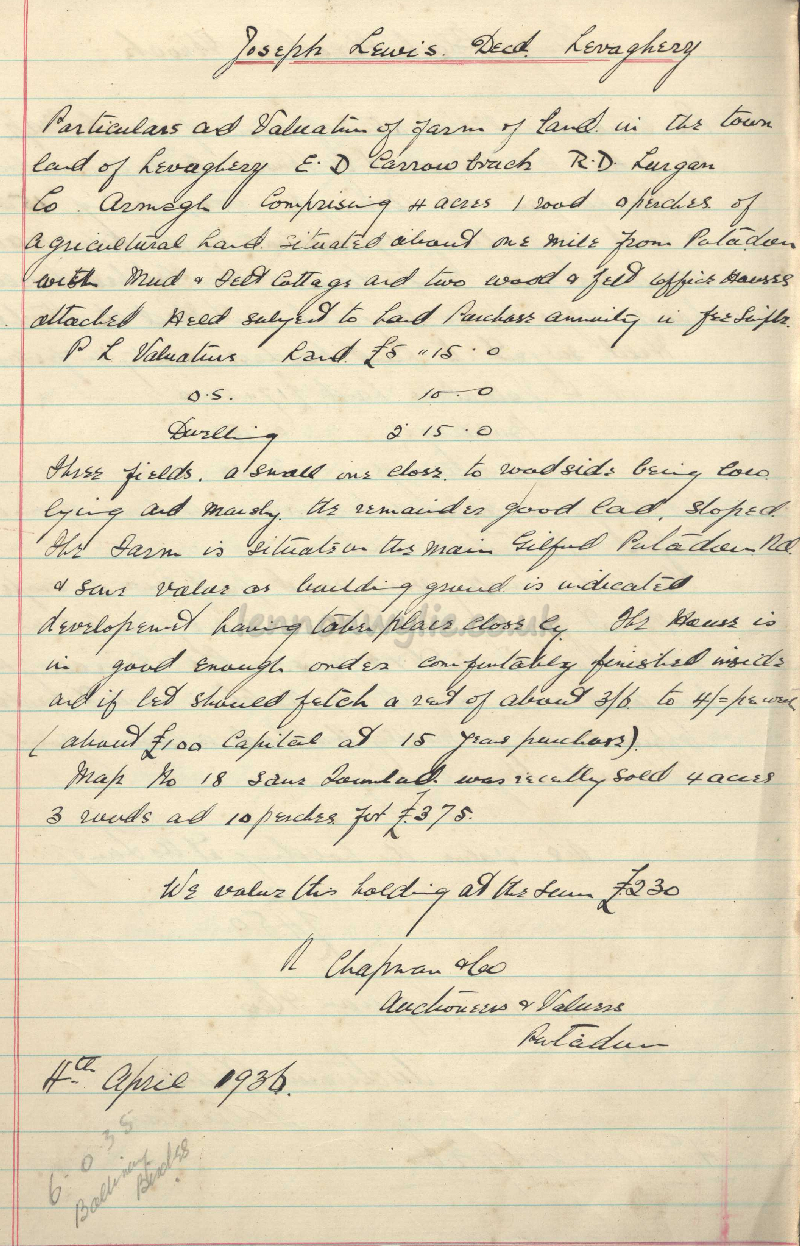 Joseph Lewis. Decd. Levaghery
Particulars ad Valuation of farm of land in the town
land of Levaghery E. D Carrowbrack R.D. Lurgan
Co. Armagh Comprising 4 acres 1 rood 0 perches of
agricultural land situated about one mile from Portadown
with Mud & Felt Cottage and two wood & felt office Houses
attached Held subject to Land Purchase annuity in fee Simple.
P L Valuations Land £5 " 15 . 0
O.S. 10 - 0
Dwelling 2 15 . 0
Three fields. a small one close to roadside being low
lying and marshy the remainder good land, sloped.
The Farm is situate on the main Gilford Portadown Rd.
& some value as building ground is indicated
development having taken place close by. The House is
in good enough order comfortably finished inside
and if let should fetch a rent of about 3/6 to 4/= per week
(about £100 Capital at 15 years purchase).
Map No 18 same Townland was recently sold 4 acres
3 roods ad 10 perches for £375.
We value this holding at the sum £230
R Chapman & Co
Auctioneers & Valuers
Portadown
4th April 1936.
6-0 3 5